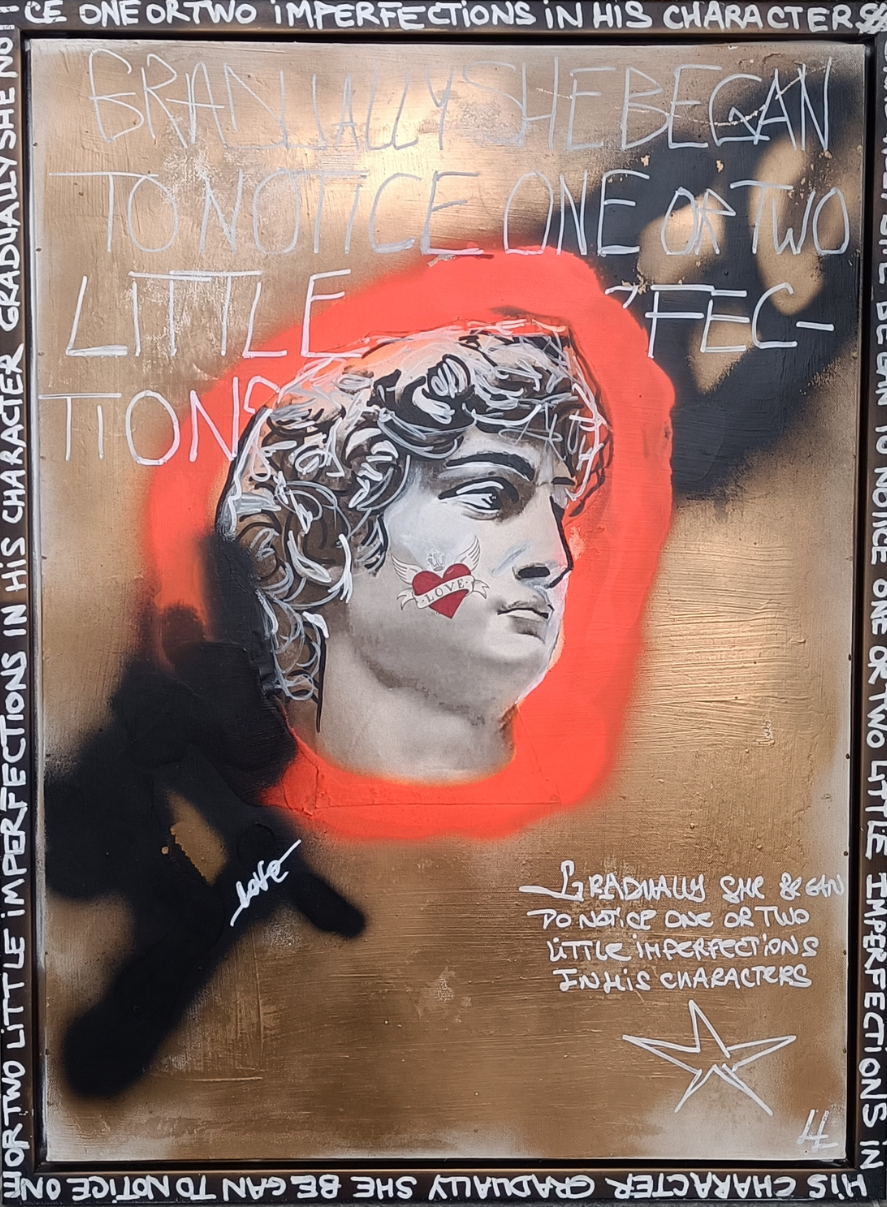 CE ONE OR TWO IMPERFECTIONS IN HIS CHARACTERS
GRADUALLY SHE BEGAN
TO NOTICE ONE OR TWO
LITTLE FEC-
TIONS
LOVE
love
GRADUALLY SHE BEGAN
TO NOTICE ONE OR TWO
LITTLE IMPERFECTIONS
IN HIS CHARACTERS
LL
SHE BEGAN TO NOTICE ONE OR TWO LITTLE IMPERFECTIONS IN
HIS CHARACTER GRADUALLY SHE BEGAN TO NOTICE ONE
OR TWO LITTLE IMPERFECTIONS IN HIS CHARACTER GRADUALLY SHE NO